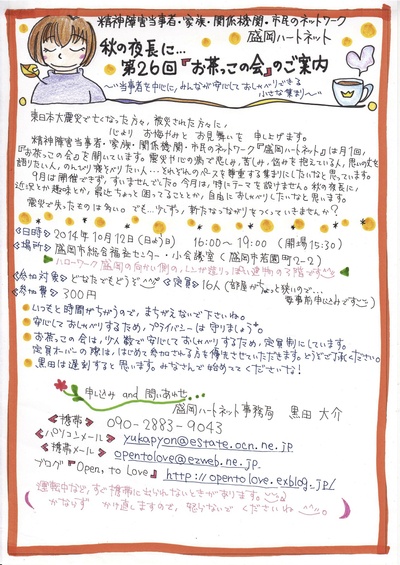 精神障害当事者・家族・関係機関・市民のネットワーク
盛岡ハートネット
秋の夜長に…
第26回『お茶っこの会』のご案内
～当事者を中心に、みんなが安心しておしゃべりできる
小さな集まり～
東日本大震災で亡くなった方々、被災された方々に、
心より お悔やみと お見舞いを 申し上げます。
精神障害当事者・家族・関係機関・市民のネットワーク『盛岡ハートネット』は月1回、
『お茶っこの会』を開いています。震災や心の病で悲しみ、苦しみ、悩みを抱えている人、思いの丈を
語りたい人、のんびり過ごしたい人…それぞれのペースを尊重する集まりにしたいなと思っています。
9月は開催できず、すいませんでした。今月は、特にテーマを設けません。秋の夜長に、
近況とか趣味とか、最近ちょっと困ってることとか、自由におしゃべりしたいなと思います。
震災で失ったものは多い。でも…少しずつ、新たなつながりをつくっていきませんか？
日時 2014年10月12日(日よう日) 16:00～19:00 (開場15:30)
場所 盛岡市総合福祉センター・小会議室(盛岡市若園町2-2)
ハローワーク盛岡の向かい側のレンガ造りっぽい建物の3階です
参加対象 どなたでもどうぞ 定員 16人(部屋がちょっと狭いので…
参加費 300円 要事前申込みです
いつもと時間がちがうので、まちがえないで下さいね。
安心しておしゃべりするため、プライバシーは守りましょう。
お茶っこの会は、少人数で安心しておしゃべりするため、定員制にしています。
定員オーバーの際は、はじめて参加される方を優先させていただきます。どうぞご了承ください。
黒田は遅刻すると思います。みなさんで始めててくださいな！
申し込み and 問いあわせ…
盛岡ハートネット事務局 黒田 大介
携帯 090-2883-9043
パソコンメール yukapyon@estate.ocn.ne.jp
携帯メール opentolove@ezweb.ne.jp
ブログ『Open, to Love』 http://opentolove.exblog.jp/
運転中など、すぐ携帯に出られないときがあります。
かならず かけ直しますので、怒らないで くださいね